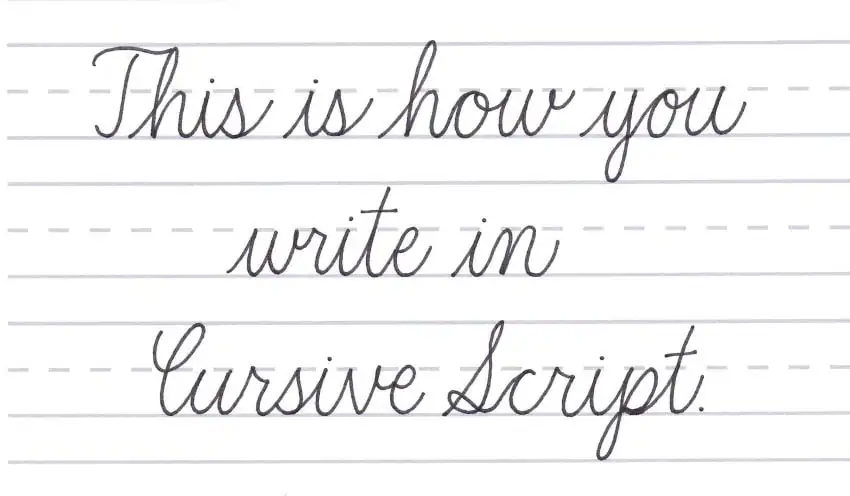 This is how you
write in
Cursive Script.